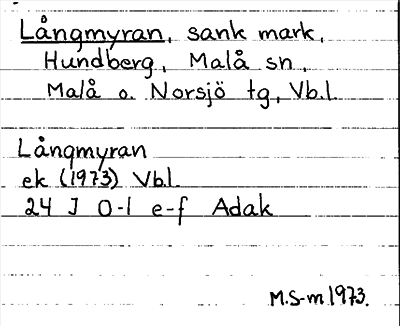 Långmyran, sank mark,
Hundberg, Malå sn,
Malå o. Norsjö tg, Vb.l.
Långmyran
ek (1973) Vbl
24 J 0-1 e-f Adak
M.S-m 1973.